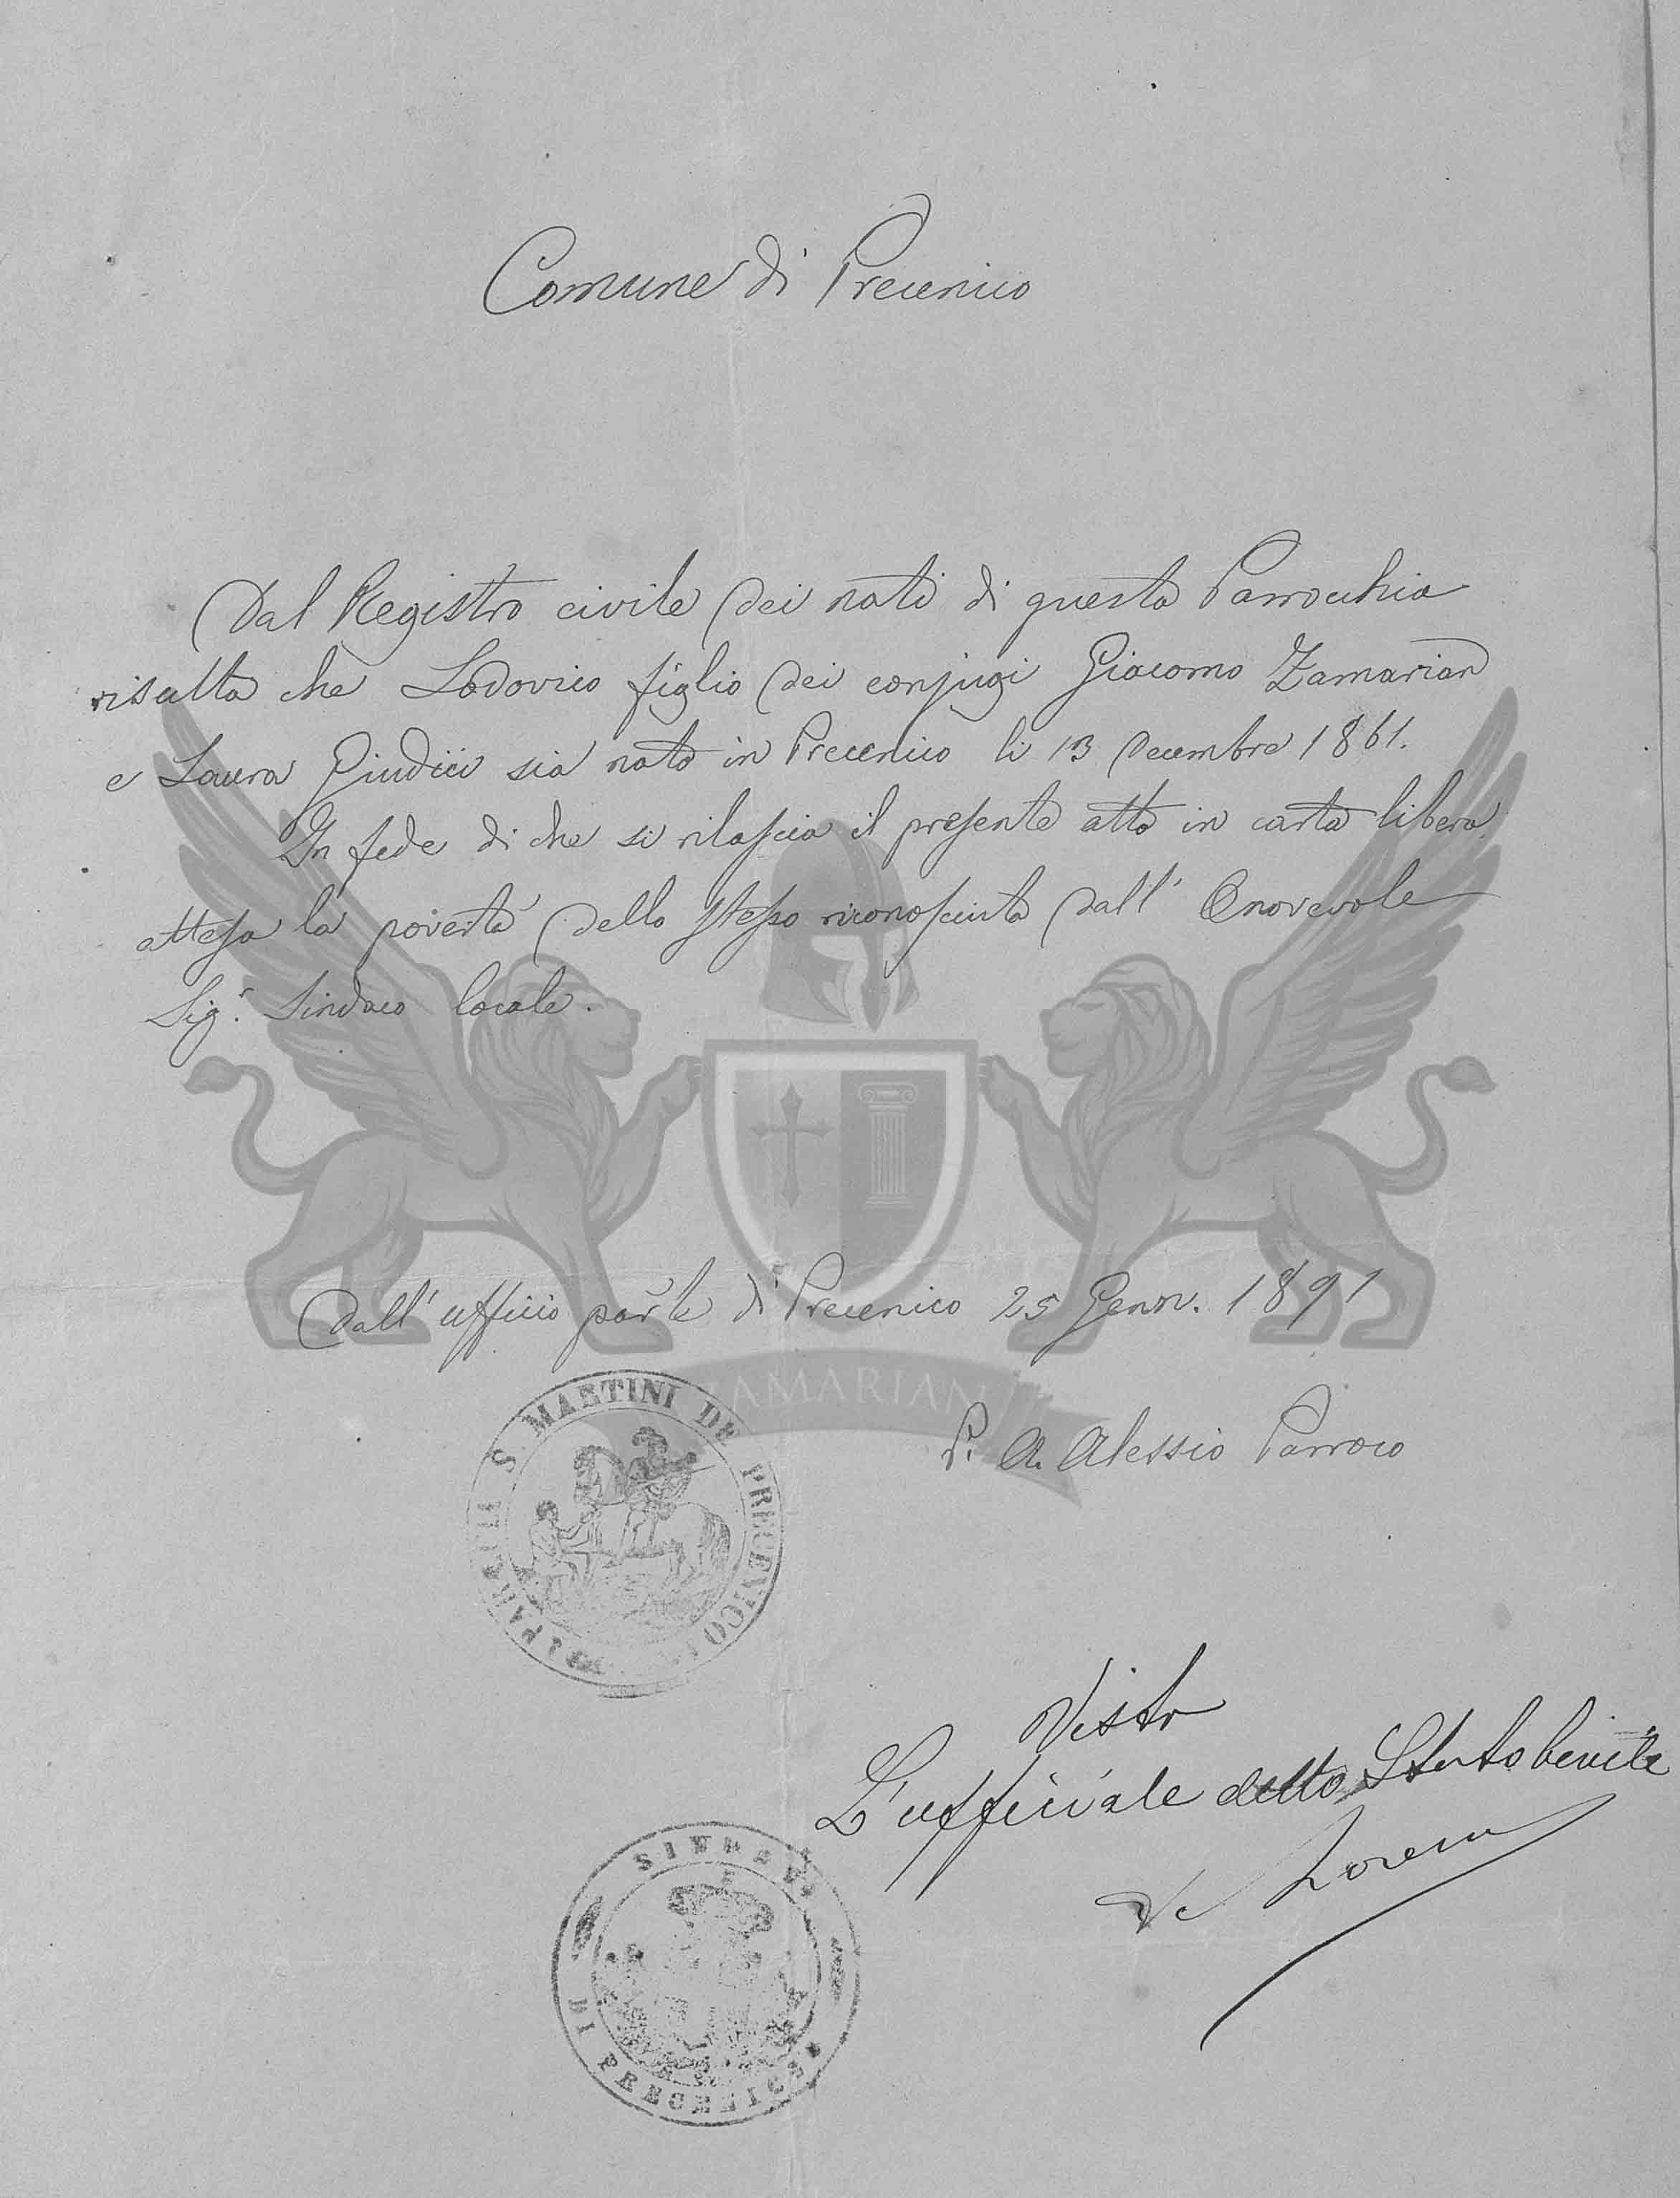 Comune di Precenico
Dal Registro civile dei nati di questa Parrocchia
risulta che Lodovico figlio dei conjugi Giacomo Zamarian
e Laura Giudici sia nato in Precenico li 13 Decembre 1861.
In fede di che si rilascia il presente atto in carta libera
attesa la povertà dello stesso riconosciuta dall' Onorevole
Sig.r Sindaco locale.
Dall' ufficio parr.le di Precenico 25 Genn. 1891
S. MARTINI DE PRECENICO
AMARIAN
P. A. Alessio Parroco
Visto
L'ufficiale dello Stato Civile
De
SINDACO
DI PRECENICO